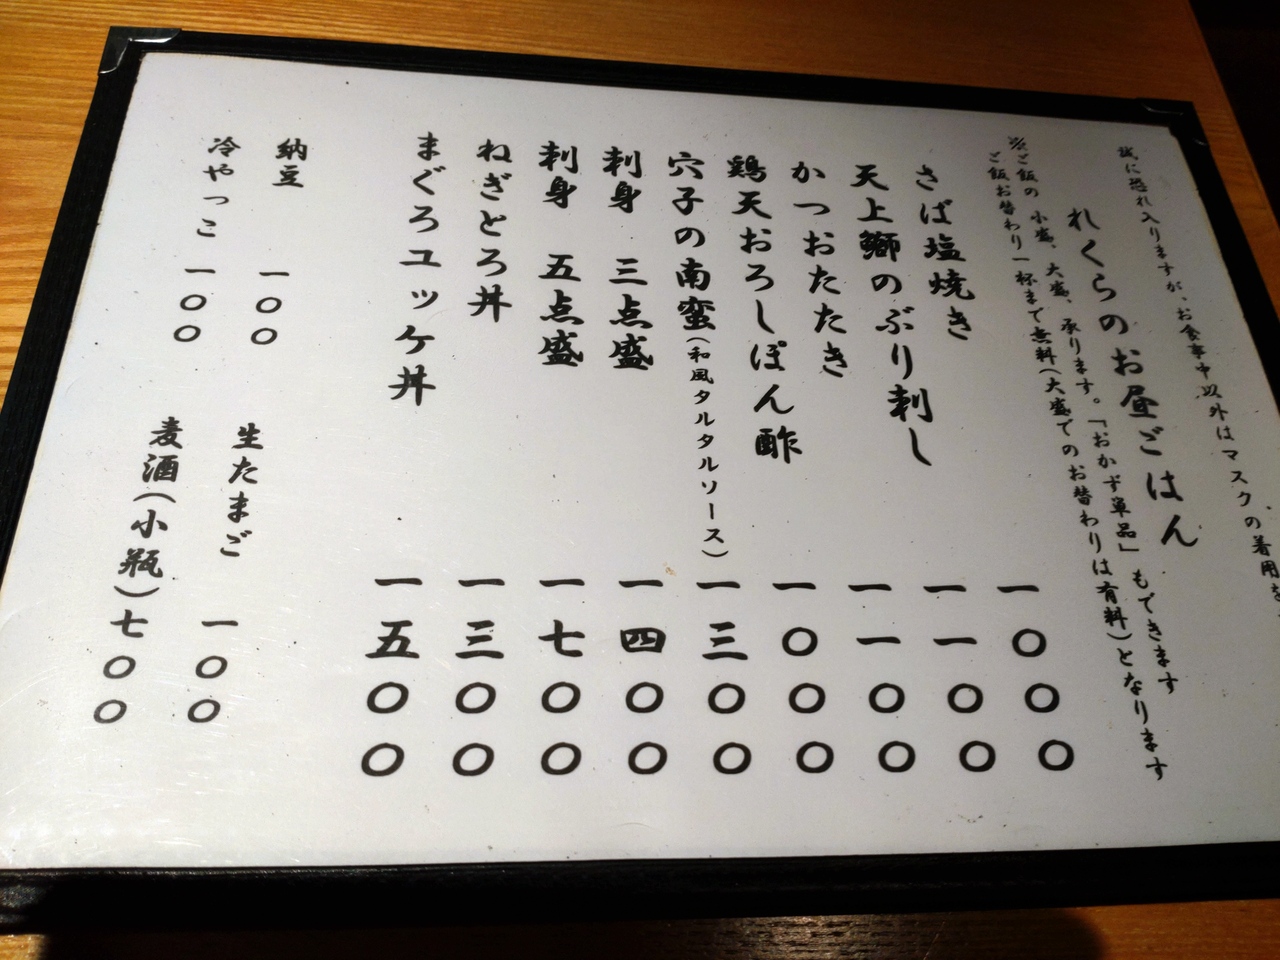 誠に恐れ入りますが、お食事中以外はマスクの着用を
れくらのお昼ごはん
※ご飯の小盛、大盛、承ります。「おかず単品」もできます
ご飯お替わり一杯まで無料(大盛でのお替わりは有料)となります
さば塩焼き 一〇〇〇
天上鰤のぶり刺し 一一〇〇
かつおたたき 一一〇〇
鶏天おろしぽん酢 一〇〇〇
穴子の南蛮(和風タルタルソース) 一三〇〇
刺身 三点盛 一四〇〇
刺身 五点盛 一七〇〇
ねぎとろ丼 一三〇〇
まぐろユッケ丼 一五〇〇
納豆 一〇〇
生たまご 一〇〇
冷やっこ 一〇〇
麦酒(小瓶)七〇〇